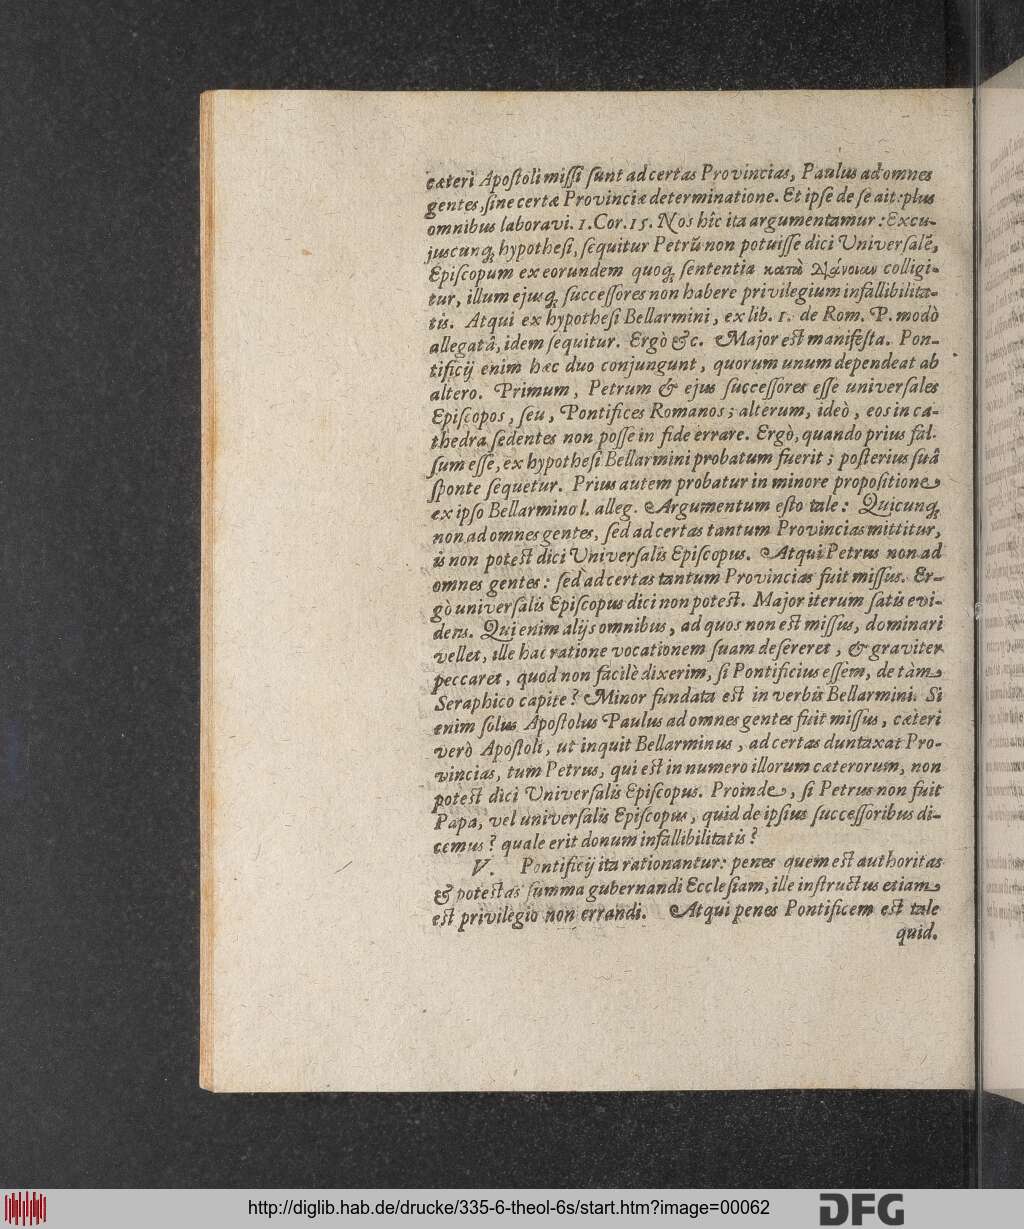 cæteri Apostoli missi sunt ad certas Provincias, Paulus ad omnes
gentes, sine certæ Provinciæ determinatione. Et ipse de se ait: plus
omnibus laboravi. 1. Cor. 15. Nos hîc ita argumentamur: Ex cu-
juscunq; hypothesi, sequitur Petrũ non potuisse dici Universalẽ,
Episcopum ex eorundem quoq; sententia κατὰ διάνοιαν colligi-
tur, illum ejusq; successores non habere privilegium infallibilita-
tis. Atqui ex hypothesi Bellarmini, ex lib. 1. de Rom. P. modò
allegatâ, idem sequitur. Ergò &c. Major est manifesta. Pon-
tificij enim hæc duo conjungunt, quorum unum dependeat ab
altero. Primum, Petrum & ejus successores esse universales
Episcopos, seu, Pontifices Romanos; alterum, ideò, eos in ca-
thedra sedentes non posse in fide errare. Ergò, quando prius fal-
sum esse, ex hypothesi Bellarmini probatum fuerit; posterius suâ
sponte sequetur. Prius autem probatur in minore propositione
ex ipso Bellarmino l. alleg. Argumentum esto tale: Quicunq;
non ad omnes gentes, sed ad certas tantum Provincias mittitur,
is non potest dici Universalis Episcopus. Atqui Petrus non ad
omnes gentes: sed ad certas tantum Provincias fuit missus. Er-
gò universalis Episcopus dici non potest. Major iterum satis evi-
dens. Qui enim alijs omnibus, ad quos non est missus, dominari
vellet, ille hac ratione vocationem suam desereret, & graviter
peccaret, quod non facilè dixerim, si Pontificius essem, de tàm
Seraphico capite? Minor fundata est in verbis Bellarmini. Si
enim solus Apostolus Paulus ad omnes gentes fuit missus, cæteri
verò Apostoli, ut inquit Bellarminus, ad certas duntaxat Pro-
vincias, tum Petrus, qui est in numero illorum cæterorum, non
potest dici Universalis Episcopus. Proinde, si Petrus non fuit
Papa, vel universalis Episcopus, quid de ipsius successoribus di-
cemus? quale erit donum infallibilitatis?
V. Pontificij ita rationantur: penes quem est authoritas
& potestas summa gubernandi Ecclesiam, ille instructus etiam
est privilegio non errandi. Atqui penes Pontificem est tale
quid.
http://diglib.hab.de/drucke/335-6-theol-6s/start.htm?image=00062
DFG